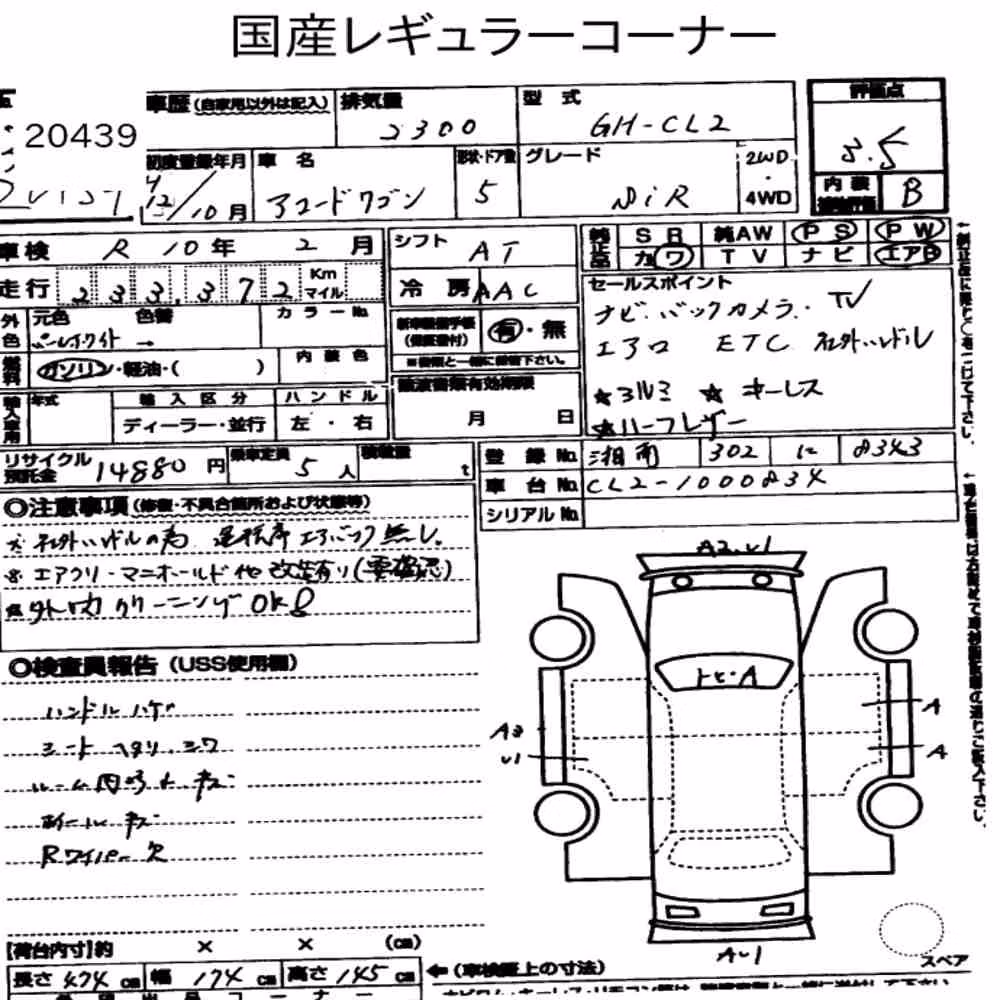 国産レギュラーコーナー
車歴 (自家用以外は記入)
排気量
2300
型式
GH-CL2
評価点
3.5
20439
初度登録年月
12/10月
車名
アコードワゴン
形状・ドア数
5
グレード
SiR
2WD
・
4WD
内装
B
車検 R 10年 2月
走行 233,372 Km マイル
シフト AT
冷房 AAC
純正品
SR 純AW PS PW
カワ TV ナビ エアB
セールスポイント
ナビ.バックカメラ. TV
エアロ ETC 社外ハンドル
★アルミ ★キーレス
★ハーフレザー
外色
元色 色替
パールホワイト →
カラーNo.
新車整備手帳
(保証書付)
有・無
※書類と一緒に提出下さい。
燃料
ガソリン・軽油・( )
内装色
譲渡書類有効期限
月 日
輸入車用
年式
輸入区分
ディーラー・並行
ハンドル
左・右
リサイクル預託金 14880円
乗車定員 5人
積載量 t
登録No. 湘南 302 に 8343
車台No. CL2-1000834
シリアルNo.
◎注意事項 (修復・不具合箇所および状態等)
※社外ハンドルの為 運転席エアバック無し.
※エアクリ・マニホールド他 改造有り(要確認)
※外内クリーニングOK!!
◎検査員報告 (USS使用欄)
ハンドルハゲ
シートヘタリ.シワ
ルーム内張キズ
ホイールキズ
Rワイパー欠
A2.U1
トヒ・A
A2
U1
A
A
AU1
スペア
[荷台内寸]約 × × (cm)
長さ 474 cm 幅 174 cm 高さ 145 cm
←(車検証上の寸法)